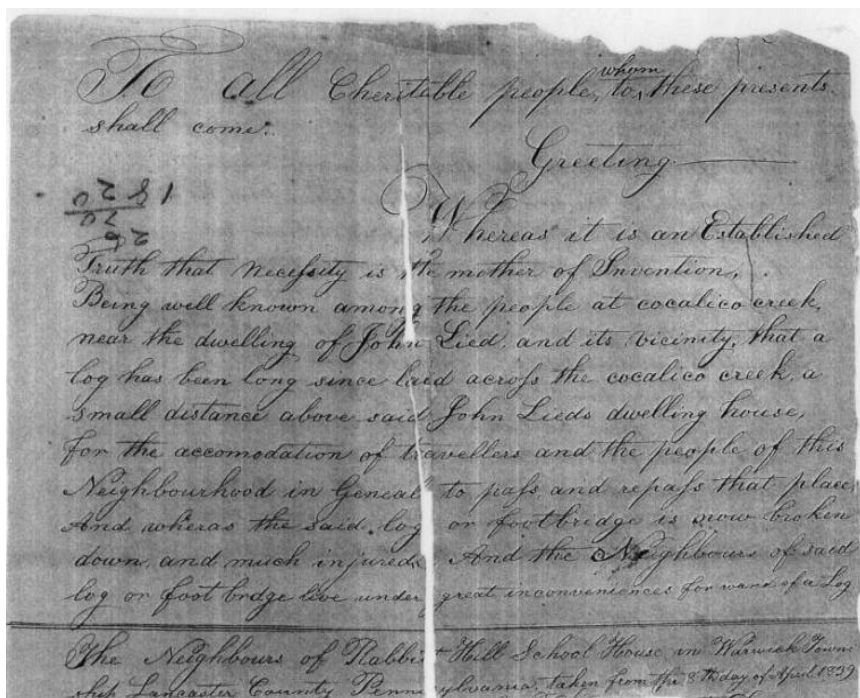 To all Cheritable people, to whom these presents.
shall come:
Greeting
Whereas it is an Established
Truth that necessity is the mother of Invention,
Being well known among the people at cocalico creek,
near the dwelling of John Lied, and its vicinity, that a
log has been long since laid across the cocalico creek, a
small distance above said John Lieds dwelling house,
for the accomodation of travellers and the people of this
Neighbourhood in Geneal to pass, and repass that place,
And wheras the said log or footbridge is now broken
down, and much injureds. And the Neighbours of said
log or foot brdge live under great inconveniences for want of a Log
The Neighbours of Rabbit Hill School House in Warwick Town
ship Lancaster County Pennsylvania, taken from the 8th day of April 1839